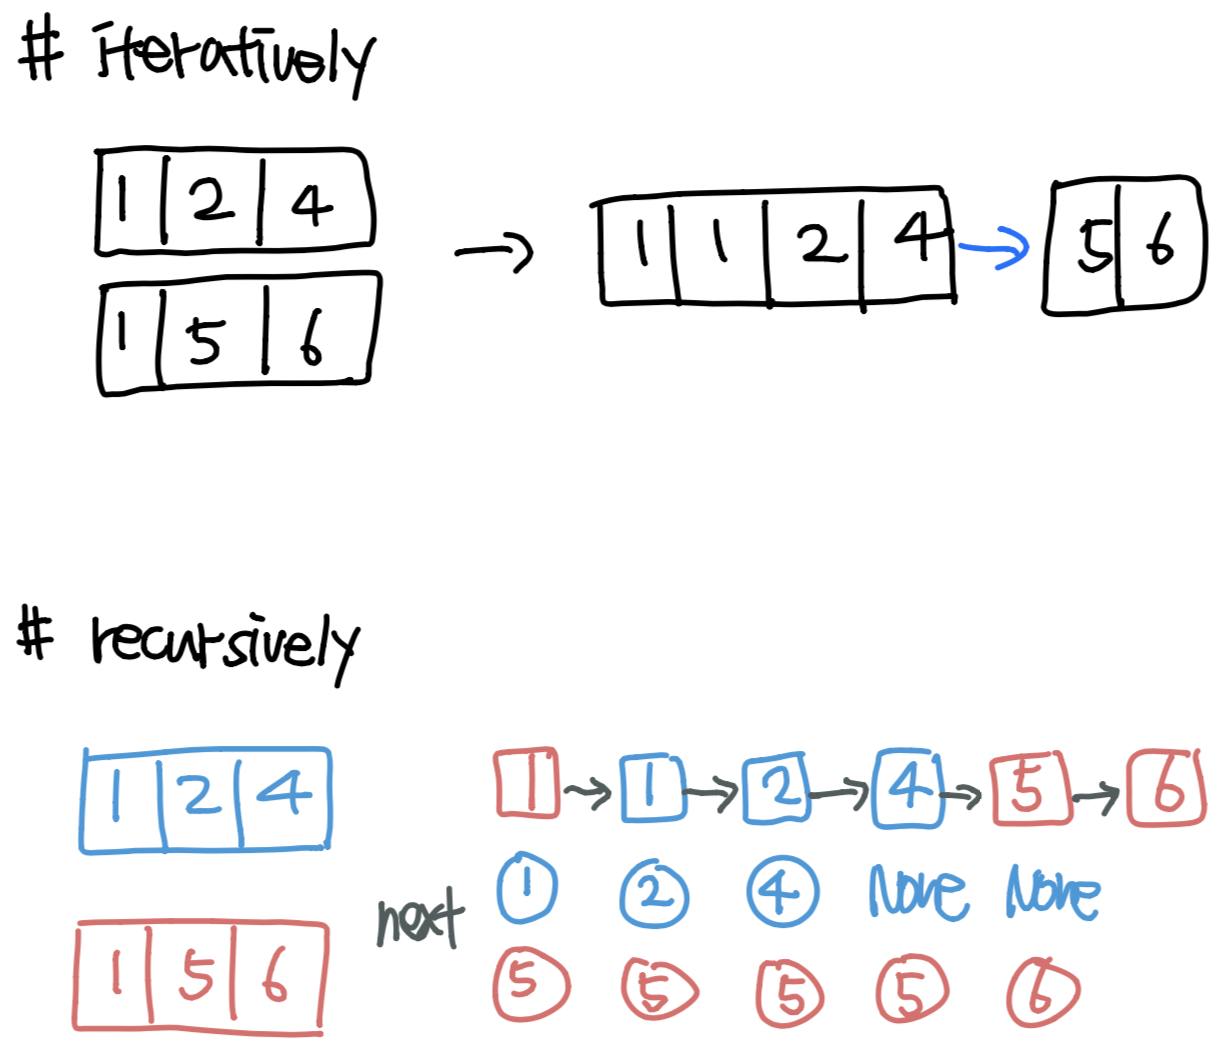 # iteratively
1 2 4
1 5 6
→ 1 1 2 4 → 5 6
# recursively
1 2 4
1 5 6
1 → 1 → 2 → 4 → 5 → 6
next
1 2 4 None None
5 5 5 5 6